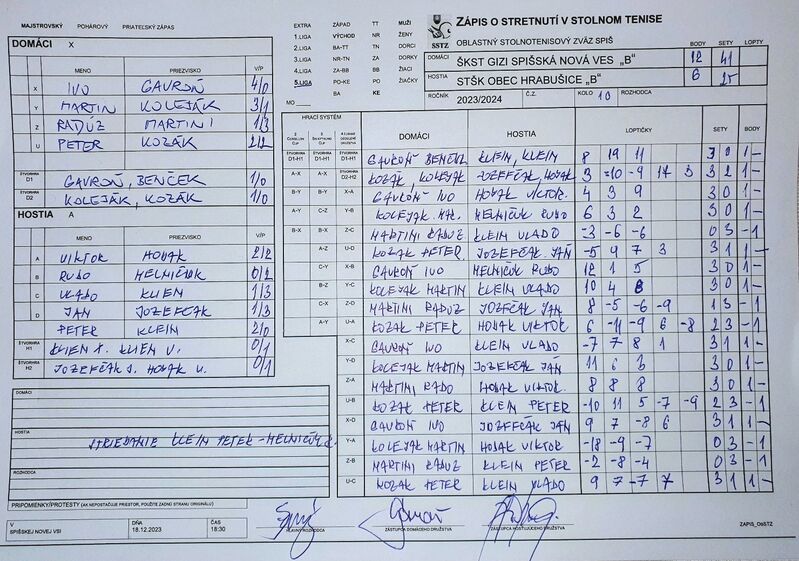 MAJSTROVSKÝ POHÁROVÝ PRIATEĽSKÝ ZÁPAS
DOMÁCI X
MENO PRIEZVISKO V/P
X IVO GAVROŇ 4/0
Y MARTIN KOLEJÁK 3/1
Z RADÚZ MARTINI 1/3
U PETER KOZÁK 2/2
ŠTVORHRA D1 GAVROŇ, BENČEK 1/0
ŠTVORHRA D2 KOLEJÁK, KOZÁK 1/0
HOSTIA A
MENO PRIEZVISKO V/P
A VIKTOR HOVAK 2/2
B RUDO MELNIČUK 0/2
C VLADO KLIEN 1/3
D JÁN JOZEFČÁK 1/3
PETER KLEIN 2/0
ŠTVORHRA H1 KLIEN P. KLIEN V. 0/1
ŠTVORHRA H2 JOZEFČÁK J. HOVAK V. 0/1
DOMÁCI
HOSTIA STRIEDANIE KLEIN PETER - MELNIČUK
ROZHODCA
PRIPOMIENKY/PROTESTY (AK NEPOSTAČUJE PRIESTOR, POUŽITE ZADNÚ STRANU ORIGINÁLU)
V SPIŠSKEJ NOVEJ VSI
DŇA 18.12.2023
ČAS 18:30
EXTRA ZÁPAD TT MUŽI
1.LIGA VÝCHOD NR ŽENY
2.LIGA BA-TT TN DORCI
3.LIGA NR-TN ZA DORKY
4.LIGA ZA-BB BB ŽIACI
5.LIGA PO-KE PO ŽIAČKY
BA KE
MO
SSTZ
ZÁPIS O STRETNUTÍ V STOLNOM TENISE
OBLASTNÝ STOLNOTENISOVÝ ZVÄZ SPIŠ BODY SETY LOPTY
DOMÁCI ŠKST GIZI SPIŠSKÁ NOVÁ VES „B" 12 41
HOSTIA STŠK OBEC HRABUŠICE „B" 6 25
ROČNÍK 2023/2024 Č.Z. KOLO 10 ROZHODCA
HRACÍ SYSTÉM
DOMÁCI HOSTIA LOPTIČKY SETY BODY
ŠTVORHRA D1-H1 ŠTVORHRA D1-H1 ŠTVORHRA D1-H1 GAVROŇ BENČEK KLEIN, KLEIN 8 19 11 3 0 1 -
A-X A-X ŠTVORHRA D2-H2 KOZÁK, KOLEJAK JOZEFČÁK, HOVAK 3 -10 -9 17 3 3 2 1 -
B-Y B-Y X-A GAVROŇ IVO HOVAK VIKTOR. 4 3 9 3 0 1 -
A-Y C-Z Y-B KOLEJAK MAR. MELNIČUK RUDO 6 3 2 3 0 1 -
B-X B-X Z-C MARTINI RADÚZ KLEIN VLADO -3 -6 -6 0 3 - 1
A-Z U-D KOZAK PETER JOZEFČÁK JÁN -5 9 7 3 3 1 1 -
C-Y X-B GAVROŇ IVO MELNIČUK RUDO 12 1 5 3 0 1 -
B-Z Y-C KOLEJAK MARTIN KLEIN VLADO 10 4 8 3 0 1 -
C-X Z-D MARTINI RADUZ JOZEFČÁK JÁN 8 -5 -6 -9 1 3 - 1
A-Y U-A KOZAK PETER HOVAK VIKTOR 6 -11 -9 6 -8 2 3 - 1
X-C GAVROŇ IVO KLEIN VLADO -7 7 8 1 3 1 1 -
Y-D KOLEJAK MARTIN JOZEFČÁK JÁN 11 6 3 3 0 1 -
Z-A MARTINI RADO HOVAK VIKTOR. 8 8 8 3 0 1 -
U-B KOZAK PETER KLEIN PETER -10 11 5 -7 -9 2 3 - 1
X-D GAVROŇ IVO JOZEFČÁK JÁN 9 7 -8 6 3 1 1 -
Y-A KOLEJAK MARTIN HOVAK VIKTOR -18 -9 -7 0 3 - 1
Z-B MARTINI RADUZ KLEIN PETER -2 -8 -4 0 3 - 1
U-C KOZAK PETER KLEIN VLADO 9 7 -7 7 3 1 1 -
HLAVNÝ ROZHODCA ZÁSTUPCA DOMÁCEHO DRUŽSTVA ZÁSTUPCA HOSŤUJÚCEHO DRUŽSTVA
ZAPIS_OsSTZ